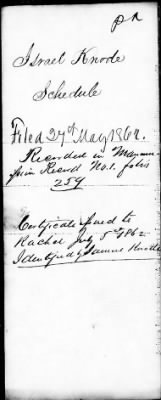 Israel Knode
Schedule
Filed 27th May 1862.
Recorded in Manumis-
sion Record No. 1. folio
259
Certificate issued to
Rachel July 5th 1862
Identified by Samuel